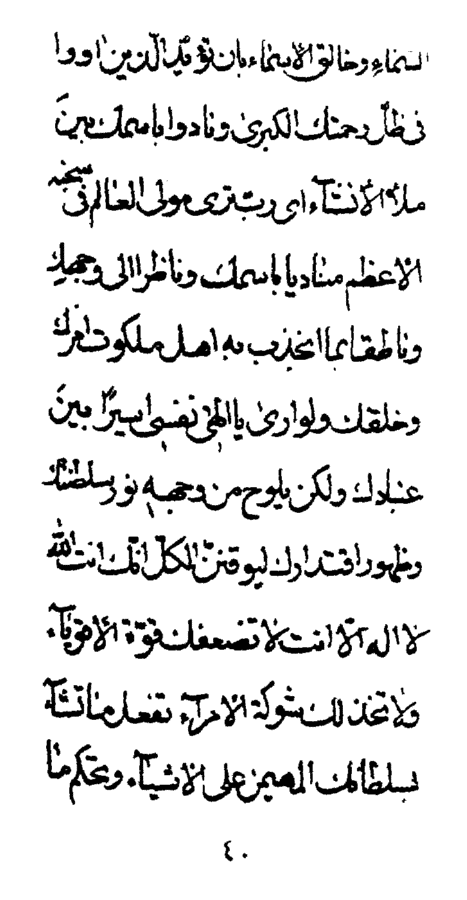 السّماء وخالق الاسماء بان تؤيّد الّذين اووا
فى ظلّ رحمتك الكبرى ونادوا باسمك بين
ملأ الأنشآء اى ربّ ترى مولى العالم فى سجنه
الاعظم مناديا باسمك وناظرا الى وجهك
وناطقا بما انجذب به اهل ملكوت امرك
وخلقك ولو ارى يا الهى نفسى اسيرًا بينَ
عبادك ولكن يلوح من وجهه نور سلطنتك
وظهور اقتدارك ليوقننّ الكلّ انّك انت اللّه
لا اله الّا انت لا تضعفك قوّة الأقويآء
ولا تخذلك شوكة الامرآء تفعل ما تشآء
بسلطانك المهيمن على الاشيآء وتحكم ما
٤٠